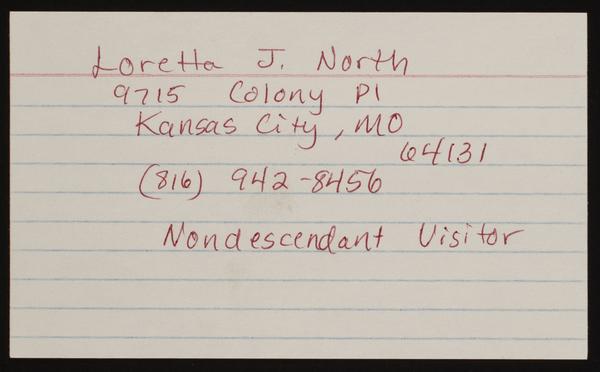 Loretta J. North
9715 Colony Pl
Kansas City, MO
64131
(816) 942-8456
Nondescendant Visitor